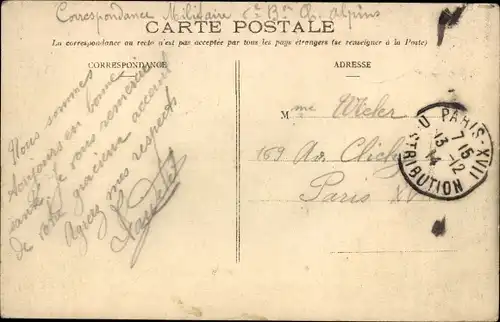 Correspondance Militaire 6e Bon Ch. Alpins
CARTE POSTALE
La correspondance au recto n'est pas acceptée par tous les pays étrangers (se renseigner à la Poste)
CORRESPONDANCE
ADRESSE
Nous sommes
toujours en bonne
santé. Je vous remercie
de votre gracieux accueil
Agréez mes respects
Mme Wicker
169 Av. Clichy
Paris XVII
PARIS-XVII
7 15
13-12
14
DISTRIBUTION